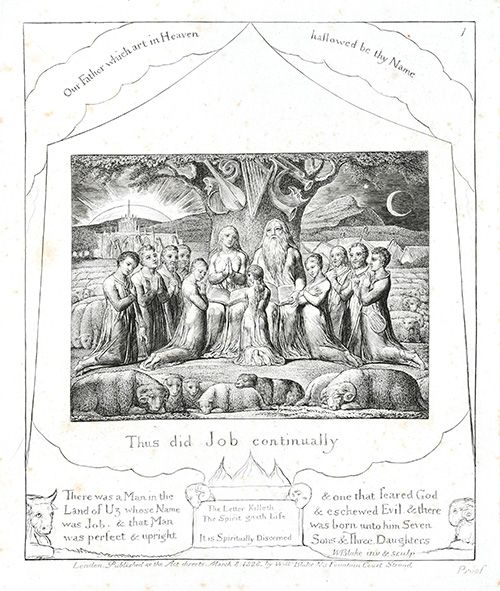 1
Our Father which art in Heaven
hallowed be thy Name
Thus did Job continually
There was a Man in the
Land of Uz whose Name
was Job. & that Man
was perfect & upright
The Letter Killeth
The Spirit giveth Life
It is Spiritually Discerned
& one that feared God
& eschewed Evil & there
was born unto him Seven
Sons & Three Daughters
WBlake inv & sculp
London. Published as the Act directs March 8. 1828. by Will Blake N3 Fountain Court Strand
Proof